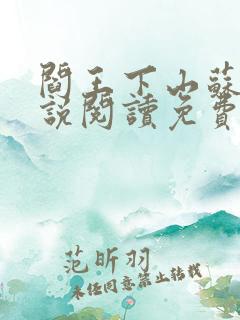 閻王下山蘇
說閱讀免費
范昕羽
未经同意禁止转载